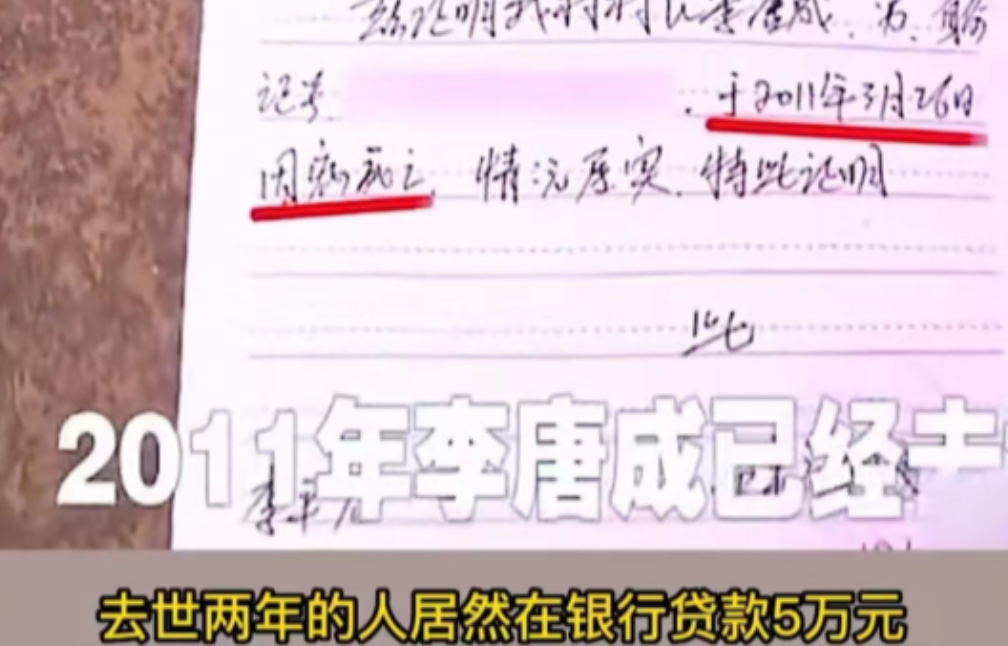 兹证明我村村民李唐成,男,身份
记号 ,于2011年3月26日
因病死亡,情况属实,特此证明
此
2011年李唐成已经去
去世两年的人居然在银行贷款5万元